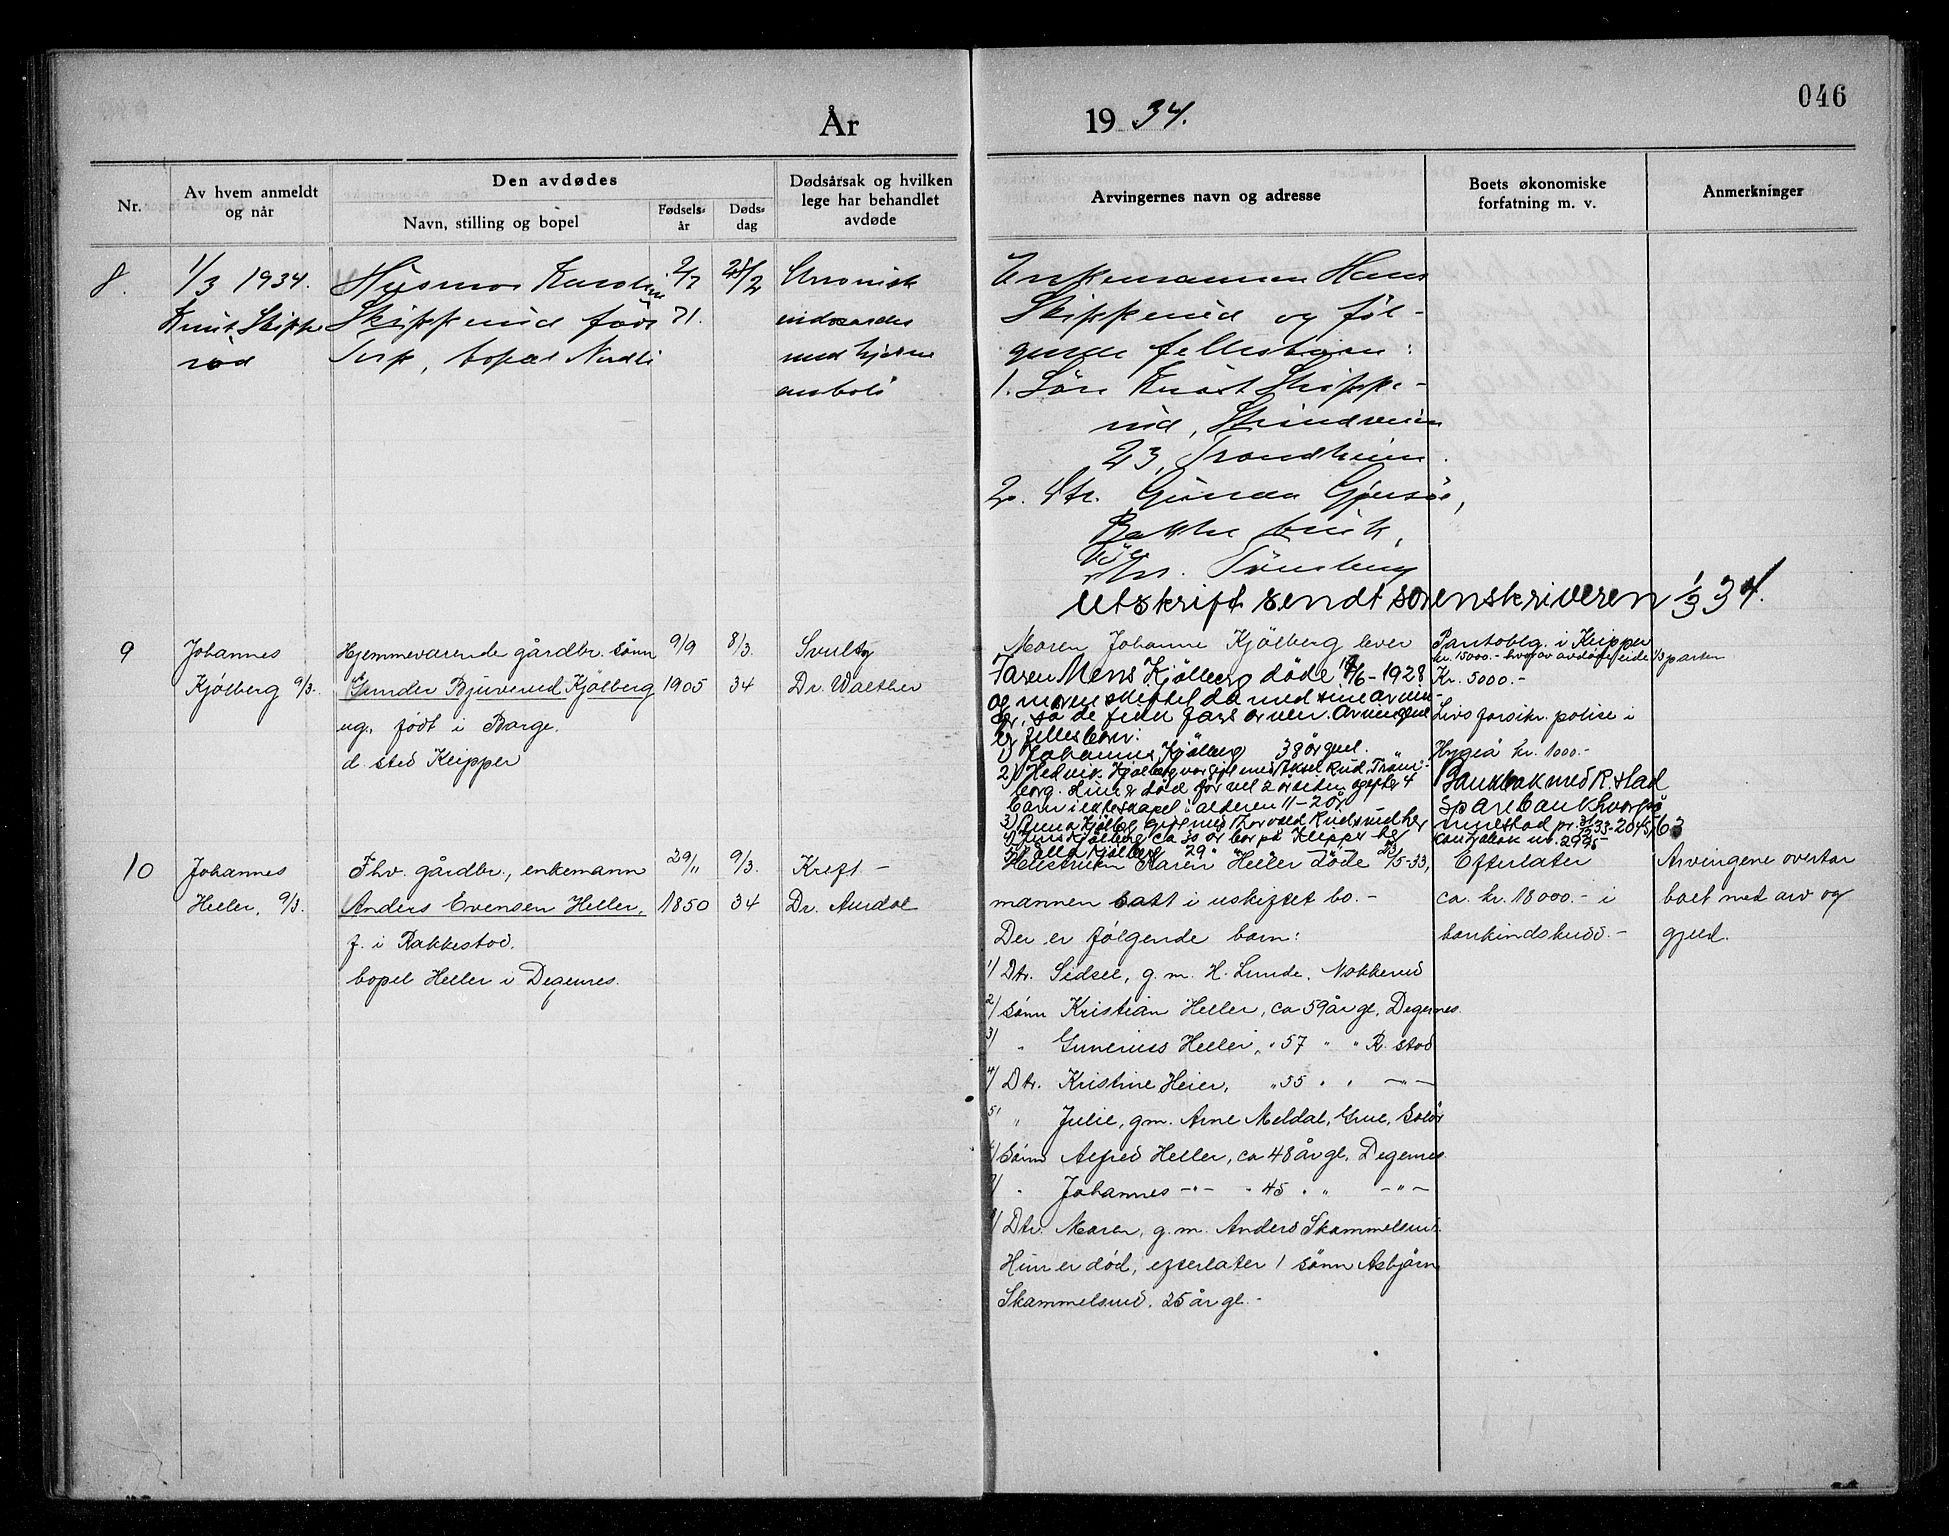 046
År 1934.
Nr.
Av hvem anmeldt og når
Den avdødes
Navn, stilling og bopel
Fødselsår
Dødsdag
Dødsårsak og hvilken lege har behandlet avdøde
Arvingernes navn og adresse
Boets økonomiske forfatning m. v.
Anmerkninger
8.
1/3 1934.
Knut Skippe
rød
Husmor Karoline
Skipperud født
Torp, bopel Nordli
2/7
71.
25/2
Chronisk
endocardit
med hjerne
emboli
Enkemannen Hans
Skipperud og føl-
gende fellesbarn:
1. Søn Knut Skippe-
rud, Strindveien
23, Trondheim.
2. Dtr. Gunda
Bakke bruk,
Tønsberg
Utskrift sendt sorenskriveren 1/3 34.
9
Johannes
Kjølberg 9/3.
Hjemmeværende gårdbr. sønn
Gunder Bjuverud Kjølberg
ug. født i Borge.
d. sted Klipper
9/9
1905
8/3.
34
Svulst
Dr. Walther
Moren Johanne Kjølberg lever
Faren Mens Kjølberg døde 17/6-1928
og moren skiftet da med sine arvin-
ger, så de fikk fars arven. Arvingene
er fellesbarn:
1) Johannes Kjølberg 38 år gml.
2) Hedvik Kjølberg var gift med Aksel Rud, Trøm-
borg. Hun er død for vel 2 år siden, og efter 4
barn i ekteskapet i alderen 11-20 år
3) Anna Kjølberg gift med Thorvald Rudsrud her
4) Jens Kjølberg ca 35 år bor på Klipper her
5) Ella Kjølberg 29
Pantoblg. i Klipper
kr. 15000.- hvorav avdøde eide 1/3 parten
Kr. 5000.-
Livsforsikr. polise i
Hygea kr. 1000.-
Bankbok med R. stad
Sparebank hvorpå
innestod pr. 31/12 33 - 2045,63
Kontrabok nr. 2995
10
Johannes
Heller, 9/3.
Fhv. gårdbr., enkemann
Anders Evensen Heller,
f. i Rakkestad.
bopel Heller i Degernes.
29/11
1850
9/3.
34
Kreft -
Dr. Aurdal
Hustruen Karen Heller døde 23/5-33,
mannen satt i uskiftet bo. -
Der er følgende barn:
1/ Dtr. Sidsel, g. m. H. Lunde, Nakkerud
2/ Sønn Kristian Heller, ca 59 år gl, Degernes.
3/ " Gunerius Heller, " 57 " " R. stad
4/ Dtr. Kristine Heier, " 55 " " -"-
5/ " Julie, g.m. Arne Meldal, Grue, Solør
6/ Sønn Alfred Heller, ca 48 år gl, Degernes.
7/ " Johannes -"- " 45 " " -"-
8/ Dtr. Maren, g.m. Anders Skammelsrud.
Hun er død, efterlater 1 sønn Asbjørn
Skammelsrud, 25 år gl. -
Efterlater
ca. kr. 18000.- i
bankindskudd. -
Arvingene overtar
boet med arv og
gjeld.